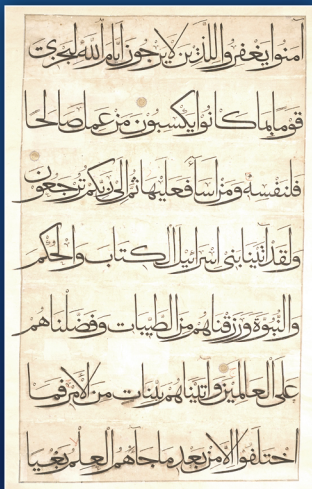 آمنوا يغفروا للذين لا يرجون أيام الله ليجزي
قوما بما كانوا يكسبون من عمل صالحا
فلنفسه ومن اسا فعليها ثم الى ربكم ترجعون
ولقد اتينا بنى اسرائيل الكتاب والحكم
والنبوة ورزقناهم من الطيبات وفضلناهم
على العالمين واتيناهم بينات من الأمر فما
اختلفوا الا من بعد ما جاهم العلم بغيا